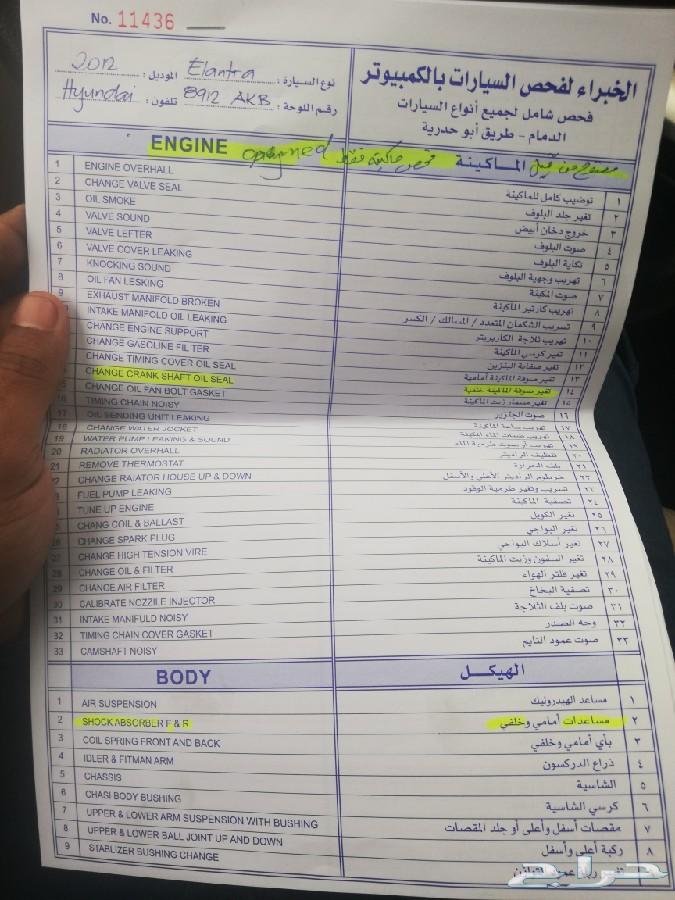 No. 11436
الخبراء لفحص السيارات بالكمبيوتر
فحص شامل لجميع أنواع السيارات
الدمام - طريق أبو حدرية
نوع السيارة : Elantra الموديل : 2012
رقم اللوحة : 8912 AKB تلفون : Hyundai
ENGINE فحص ماكينة فقط الماكينة
1 ENGINE OVERHALL توضيب كامل للماكينة ١
2 CHANGE VALVE SEAL تغير جلد البلوف ٢
3 OIL SMOKE خروج دخان أبيض ٣
4 VALVE SOUND صوت البلوف ٤
5 VALVE LEFTER تكاية البلوف ٥
6 VALVE COVER LEAKING تهريب وجهية البلوف ٦
7 KNOCKING SOUND صوت المكينة ٧
8 OIL FAN LESKING تهريب كارتير الماكينة ٨
9 EXHAUST MANIFOLD BROKEN تسريب الشكمان المتعدد / المسالك / الكسر ٩
INTAKE MANIFOLD OIL LEAKING تهريب ثلاجة الكاربريتر ١٠
CHANGE ENGINE SUPPORT تغير كرسي الماكينة ١١
CHANGE GASOLINE FILTER تغير صفاية البنزين ١٢
CHANGE TIMING COVER OIL SEAL تغير صوفة الماكينة أمامية ١٣
CHANGE CRANK SHAFT OIL SEAL تغير صوفة الماكينة خلفية ١٤
CHANGE OIL FAN BOLT GASKET تغير مسمار زيت الماكينة ١٥
16 TIMING CHAIN NOISY صوت الجنزير ١٦
17 OIL SENDING UNIT LEAKING ١٧
18 CHANGE WATER JOCKET ١٨
19 WATER PUMP LEAKING & SOUND ١٩
20 RADIATOR OVERHALL تنظيف الراديتر ٢٠
21 REMOVE THERMOSTAT بلف الحرارة ٢١
22 CHANGE RAIATOR HOUSE UP & DOWN خرطوم الراديتر الأعلى والأسفل ٢٢
FUEL PUMP LEAKING تسريب وتغير طرمبة الوقود
TUNE UP ENGINE تصفية الماكينة ٢٤
CHANG COIL & BALLAST تغير الكويل ٢٥
CHANGE SPARK PLUG تغير البواجي ٢٦
CHANGE HIGH TENSION VIRE تغير أسلاك البواجي ٢٧
28 CHANGE OIL & FILTER تغير السفون وزيت الماكينة ٢٨
29 CHANGE AIR FILTER تغير فلتر الهواء ٢٩
30 CALIBRATE NOZZILE INJECTOR تصفية البخاخ ٣٠
31 INTAKE MANIFULD NOISY صوت بلف الثلاجة ٣١
32 TIMING CHAIN COVER GASKET وجه الصدر ٣٢
33 CAMSHAFT NOISY صوت عمود التايم ٣٣
BODY الهيكل
1 AIR SUSPENSION مساعد الهيدرونيك ١
2 SHOCK ABSORBER F & R مساعدات أمامي وخلفي ٢
3 COIL SPRING FRONT AND BACK بأي أمامي وخلفي ٣
4 IDLER & FITMAN ARM ذراع الدركسون ٤
5 CHASSIS الشاسية ٥
6 CHASI BODY BUSHING كرسي الشاسية ٦
7 UPPER & LOWER ARM SUSPENSION WITH BUSHING مقصات أسفل وأعلى أو جلد المقصات ٧
8 UPPER & LOWER BALL JOINT UP AND DOWN ركبة أعلى وأسفل ٨
9 STABLIZER BUSHING CHANGE
حراج